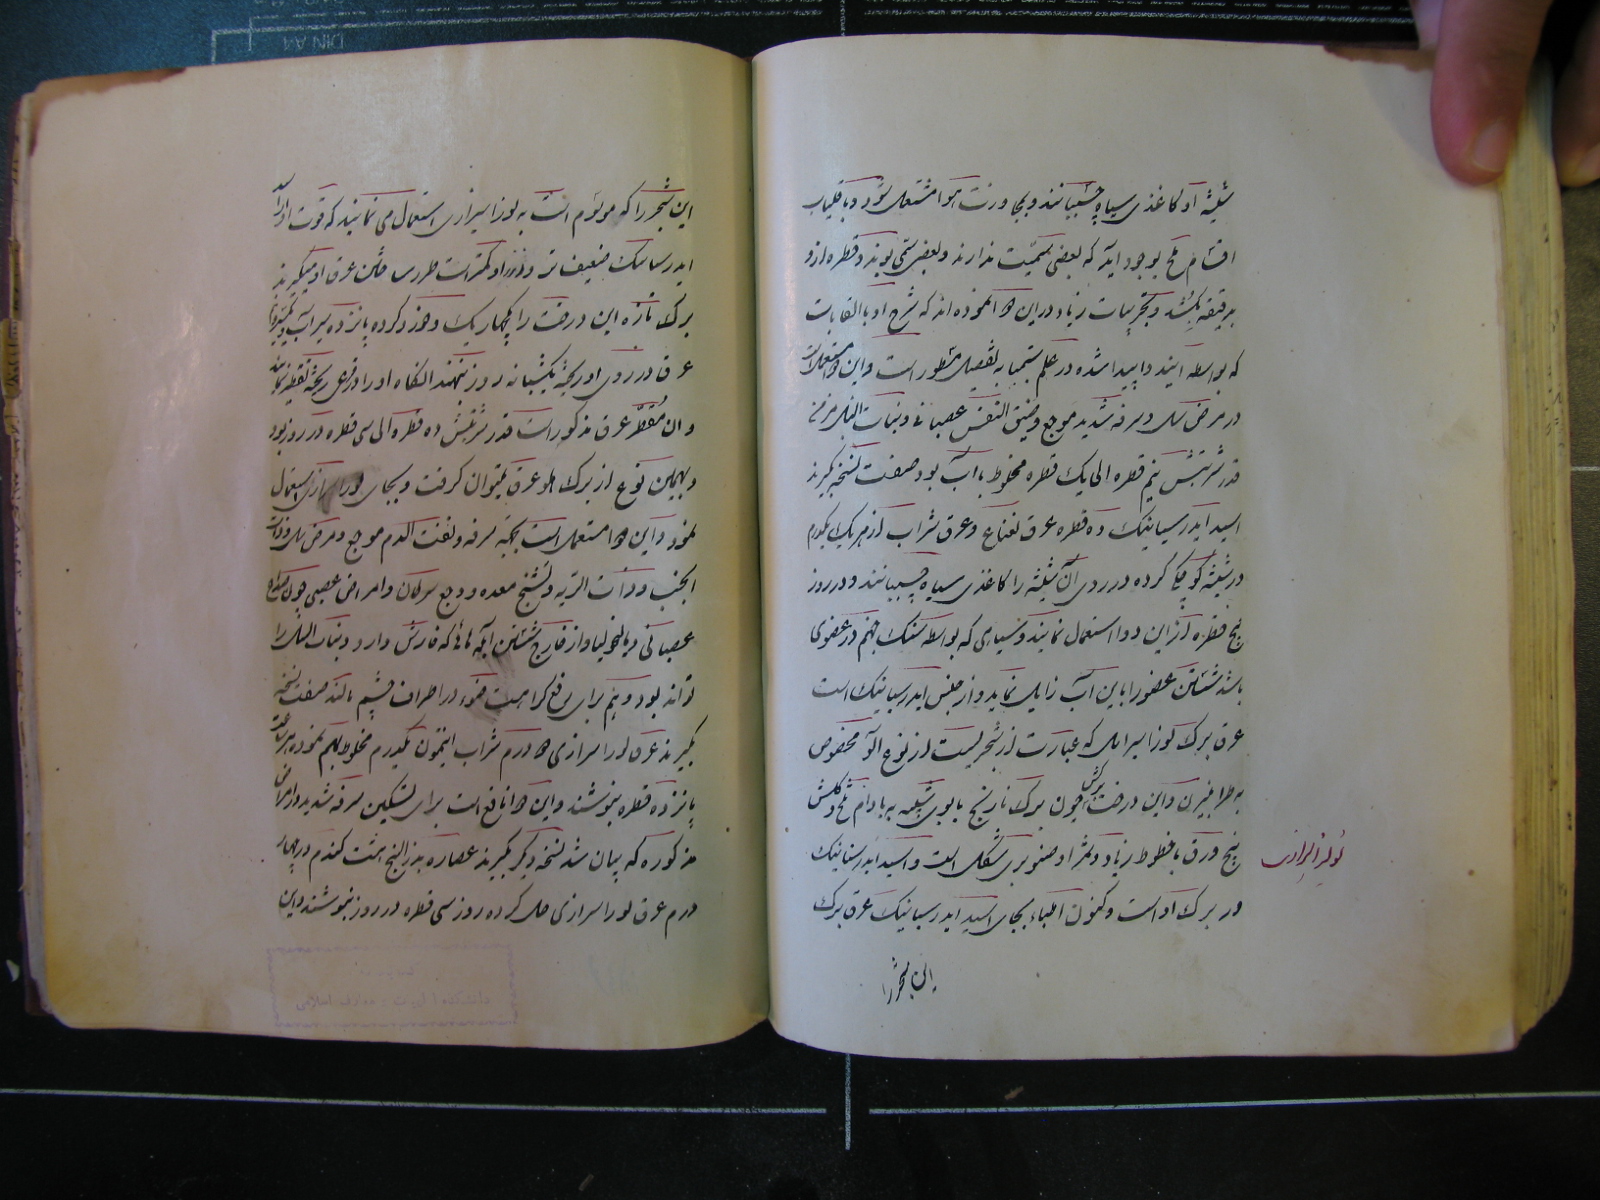 شیشهٔ او کاغذی سیاه چسبانند و بمجاورت هوا مشتعل شود و با قلیاب
اقسام ملح بوجود آید که بعضی سمّیت ندارند و بعضی سمّی بوند و قطره ازو
بدقیقه بکشد و تجربیات زیاد در این دوا نموده اند که شرح او با القابات
که بواسطه اینند و اپیدا شده در علم شیمیا به تفصیل مسطور است و این دوا مستعملست
در مرض سل و سرفه شدید موجع و ضیق النفس عصبانی و نبات اللیل مزمن
قدر شربتش نیم قطره الی یک قطره مخلوط با آب بود صفت نسخه بگیرند
اسید ایدرسیانیک ده قطره عرق نعناع و عرق شراب از هر یک یکدرم
در شیشه کوچکی کرده در روی آن شیشه را کاغذی سیاه چسبانند و در روز
پنج قطره از این دوا استعمال نمایند و سیاهی که بواسطه سنک جهنم در عضوی
باشد شستن عضو را باین آب زایل نماید و از جنس ایدرسیانیک است
عرق برک لوزا سرازی که عبارت از شجریست از نوع آلو مخصوص
به طرابیزن و این درخت برکش چون برک نارنج با بوی شبیه به بادام تلخ و کلش
پنج ورق با خطوط زیاد و ثمر او صنوبری شکل است و اسید ایدرسیانیک
در برک او است و کنون اطباء بجای اسید ایدرسیانیک عرق برک
لوزا سرازی
این شجر را
این شجر را که موسوم است به لوزا سرازی استعمال می نمایند که قوت او از
ایدرسیانیک ضعیف تر و ضرر او کمتر است طور ساختن عرق او میگیرند
برک تازه این درخت را چهار یک و خورد کرده پانزده سیر آب و یکسیر و نیم
عرق در روی او ریخته یکشبانه روز بنهند انکاه او را در قرعی ریخته تقطیر نمایند
و ان مقطّر عرق مذکور است قدر شربتش ده قطره الی سی قطره در روز بود
و بهمین نوع از برک هلو عرق میتوان کرفت و بجای لورا سرازی استعمال
نمود و این دوا مستعمل است بجهه سرفه و نفث الدم موجع و مرض سل و ذات
الجنب و ذات الریه و تشنج معده و وجع سرطان و امراض عصبی چون صداع
عصبانی و مالیخولیا و از خارج شستن آبله هائی که خارش دارد و نبات اللیل را
تواند بود و هم برای رفع کراهت ضوء در اطراف چشم مالند صفت نسخه
بگیرند عرق لورا سرازی دو درم شراب انتیمون یکدرم مخلوط بهم نموده هر ساعت
پانزده قطره بنوشند و این دوا نافع است برای تسکین سرفه شدید و امراض
مذکوره که بیان شد نسخه دیکر بگیرند عصاره بذر البنج هشت کندم در چهار
درم عرق لورا سرازی حل کرده روز سی قطره در روز بنوشند و این
دانشکده الهیات و معارف اسلامی